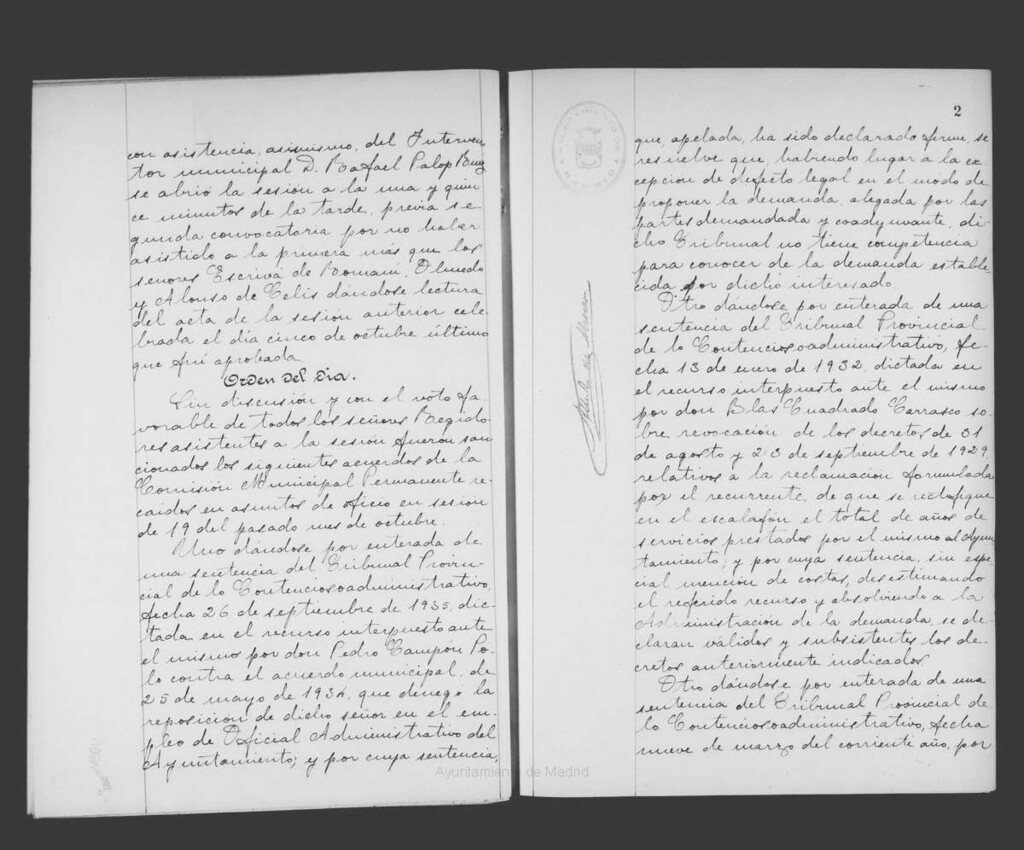 con asistencia, asimismo, del Interven
tor municipal D. Rafael Palop
se abrió la sesión a la una y quin
ce minutos de la tarde, previa se
gunda convocatoria por no haber
asistido a la primera más que los
señores Escrivá de Romaní, Olmedo
y Alonso de Celis dándose lectura
del acta de la sesión anterior cele-
brada el día cinco de octubre último
que fué aprobada
Orden del dia.
Sin discusión y con el voto fa-
vorable de todos los señores Regido-
res asistentes a la sesión fueron san
cionados los siguientes acuerdos de la
Comisión Municipal Permanente re-
caídos en asuntos de oficio en sesión
de 19 del pasado mes de octubre.
Uno dándose por enterada de
una sentencia del Tribunal Provin-
cial de lo Contenciosoadministrativo,
fecha 26 de septiembre de 1935, dic-
tada en el recurso interpuesto ante
el mismo por don Pedro Campón Po-
lo contra el acuerdo municipal, de
25 de mayo de 1934, que denegó la
reposición de dicho señor en el em-
pleo de Oficial Administrativo del
Ayuntamiento; y por cuya sentencia,
2
que, apelada, ha sido declarado firme, se
resuelve que, habiendo lugar a la ex-
cepción de defecto legal en el modo de
proponer la demanda, alegada por las
partes demandada y coadyuvante, di-
cho Tribunal no tiene competencia
para conocer de la demanda estable
cida por dicho interesado.
Otro dándose por enterada de una
sentencia del Tribunal Provincial
de lo Contenciosoadministrativo, fe-
cha 13 de enero de 1932, dictada en
el recurso interpuesto ante el mismo
por don Blas Cuadrado Carrasco so-
bre revocación de los decretos de 31
de agosto y 23 de septiembre de 1929,
relativos a la reclamación formulada
por el recurrente, de que se rectifique
en el escalafón el total de años de
servicios prestados por el mismo al Ayun
tamiento; y por cuya sentencia, sin espe
cial mención de costas, desestimando
el referido recurso y absolviendo a la
Administración de la demanda, se de-
claran válidos y subsistentes los de-
cretos anteriormente indicados.
Otro dándose por enterada de una
sentencia del Tribunal Provincial de
lo Contenciosoadministrativo, fecha
nueve de marzo del corriente año, por
Ayuntamiento de Madrid